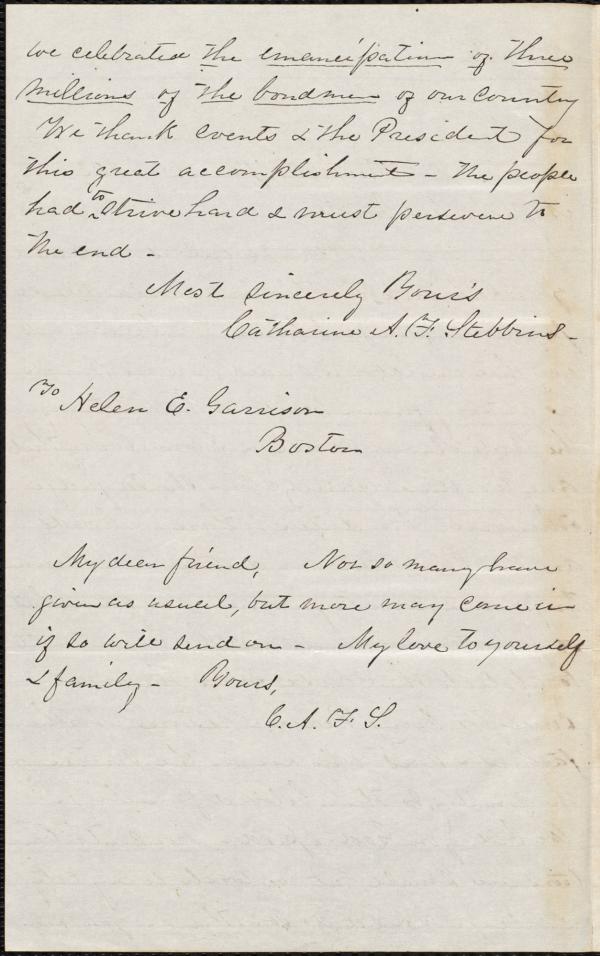 we celebrated the emancipation of three
millions of the bondmen of our country
We thank events & the President for
this great accomplishment - the people
had to strive hard & must persevere to
the end -
Most sincerely Yours
Catharine A. F. Stebbins -
To Helen E. Garrison
Boston
My dear friend, Not so many have
given as usual, but more may come in
if so will send on - My love to yourself
& family - Yours,
C. A. F. S.